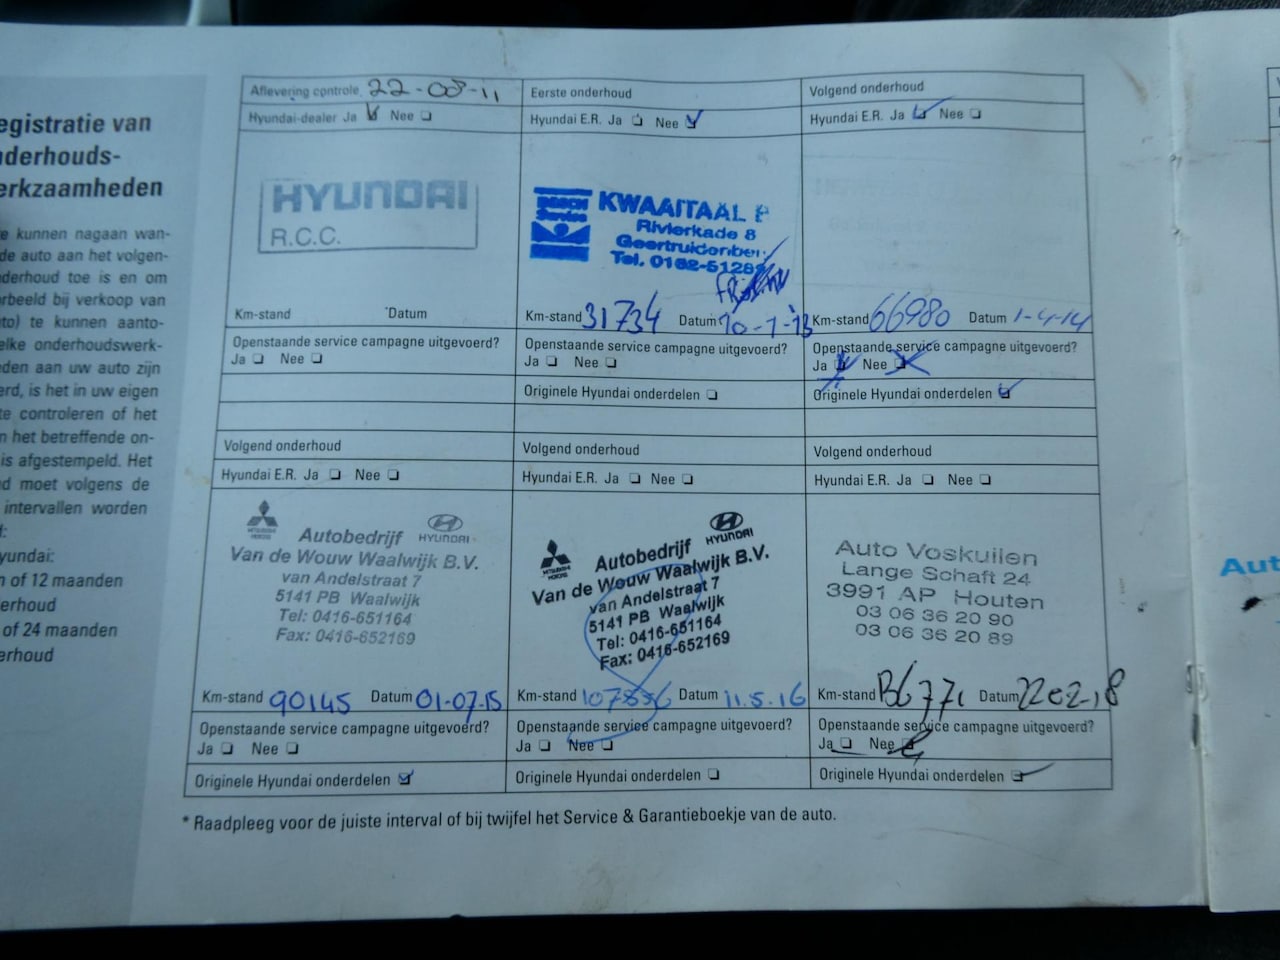 egistratie van
nderhouds-
erkzaamheden
e kunnen nagaan wan-
de auto aan het volgen-
derhoud toe is en om
rbeeld bij verkoop van
to) te kunnen aanto-
elke onderhoudswerk-
eden aan uw auto zijn
erd, is het in uw eigen
te controleren of het
n het betreffende on-
is afgestempeld. Het
d moet volgens de
intervallen worden
yundai:
n of 12 maanden
erhoud
of 24 maanden
erhoud
Aflevering controle 22-08-11
Hyundai-dealer Ja Nee
HYUNDAI
R.C.C.
Km-stand Datum
Openstaande service campagne uitgevoerd?
Ja Nee
Eerste onderhoud
Hyundai E.R. Ja Nee
BOSCH
Service
KWAAITAAL
Rivierkade 8
Geertruidenber
Tel. 0162-5128
Km-stand 31734 Datum 10-1-13
Openstaande service campagne uitgevoerd?
Ja Nee
Originele Hyundai onderdelen
Volgend onderhoud
Hyundai E.R. Ja Nee
Km-stand 66980 Datum 1-4-14
Openstaande service campagne uitgevoerd?
Ja Nee
Originele Hyundai onderdelen
Volgend onderhoud
Hyundai E.R. Ja Nee
MITSUBISHI
MOTORS
HYUNDAI
Autobedrijf
Van de Wouw Waalwijk B.V.
van Andelstraat 7
5141 PB Waalwijk
Tel: 0416-651164
Fax: 0416-652169
Km-stand 90145 Datum 01-07-15
Openstaande service campagne uitgevoerd?
Ja Nee
Originele Hyundai onderdelen
Volgend onderhoud
Hyundai E.R. Ja Nee
MITSUBISHI
MOTORS
HYUNDAI
Autobedrijf
Van de Wouw Waalwijk B.V.
van Andelstraat 7
5141 PB Waalwijk
Tel: 0416-651164
Fax: 0416-652169
Km-stand 107856 Datum 11.5.16
Openstaande service campagne uitgevoerd?
Ja Nee
Originele Hyundai onderdelen
Volgend onderhoud
Hyundai E.R. Ja Nee
Auto Voskuilen
Lange Schaft 24
3991 AP Houten
03 06 36 20 90
03 06 36 20 89
Km-stand Datum 2202-18
Openstaande service campagne uitgevoerd?
Ja Nee
Originele Hyundai onderdelen
* Raadpleeg voor de juiste interval of bij twijfel het Service & Garantieboekje van de auto.
Aut